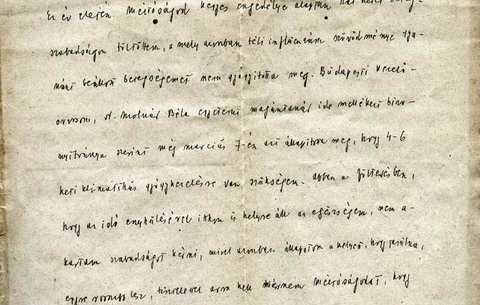 Ez év elején Méltóságod kegyes engedélye alapján hat heti beteg-
szabadságon töltöttem, a mely azonban téli influenzám szövődménye gya-
nánt beállott betegségemet nem gyógyította meg. Budapesti kezelő-
orvosom, dr. Molnár Béla egyetemi magántanár ide mellékelt bizo-
nyítványa szerint még március 7-én azt állapította meg, hogy 4-6
heti klimatikus gyógykezelésre van szükségem. Abban a feltevésben,
hogy az idő enyhülésével itthon is helyre áll az egészségem, nem a-
kartam szabadságot kérni, mivel azonban állapotom a helyett, hogy javulna,
egyre rosszabb lesz, tisztelettel arra kell kérnem Méltóságodat, hogy